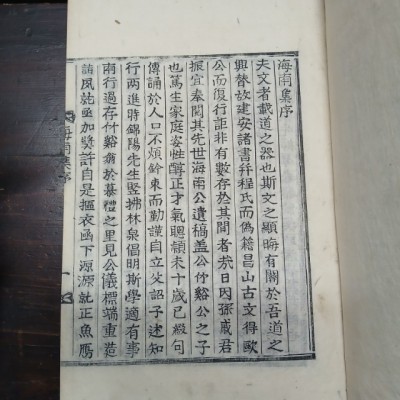 海南集序
夫文者載道之器也斯文之顯晦有關於吾道之
興替故建安諸書幷程氏而偽籍昌山古文得歐
公而復行詎非有數存於其間者哉日因孫戚君
振宜奉閱其先世海南公遺稿盖公竹谿公之子
也篤生家庭姿性醇正才氣聰穎未十歲已綴句
傳誦於人口不煩鈴束而勤謹自立父詔子述知
行兩進時錦陽先生竪拂林泉倡明斯學適有事
南行過存竹谿翁於綦禮之里見公儀標端重造
請夙就亟加奬許自是摳衣函下源源就正魚鴈
海南集序
一